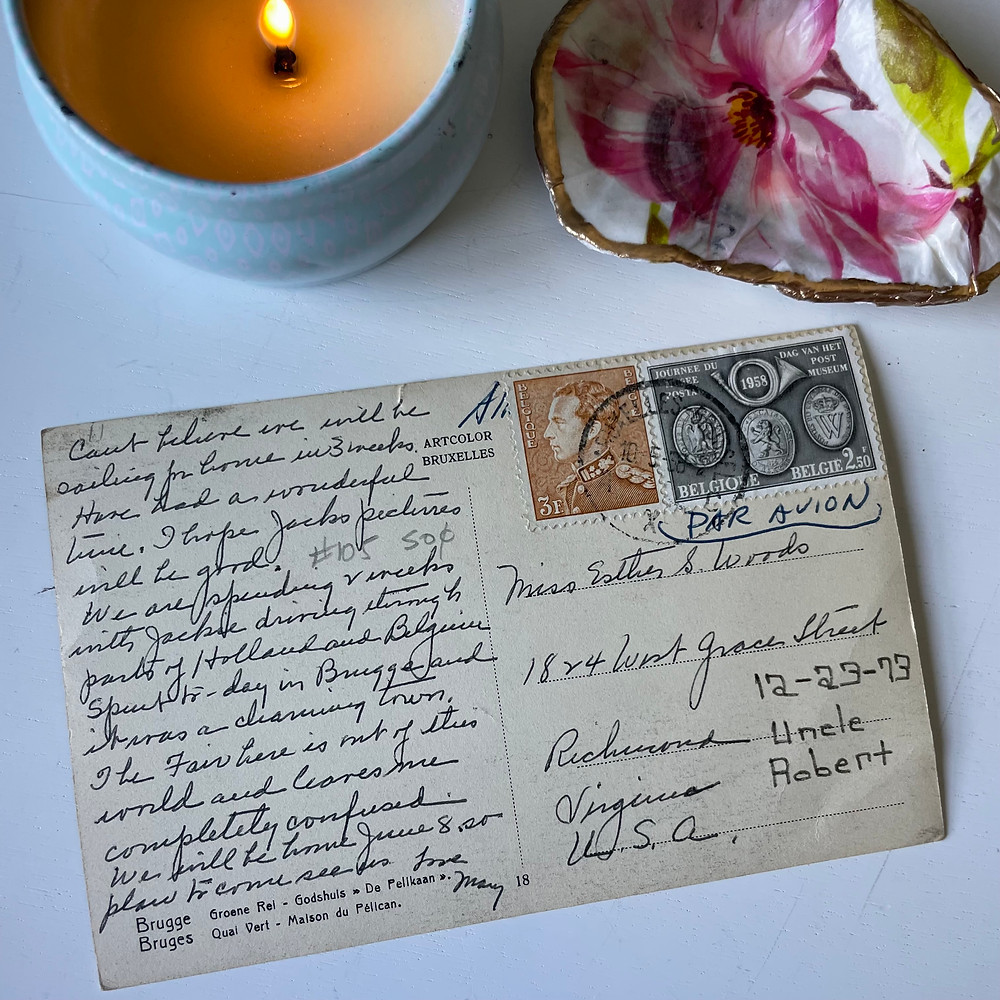 Cant believe we will be
sailing for home in 3 weeks.
Have had a wonderful
time. I hope Jacks pictures
will be good.
#105 50¢
We are spending 2 weeks
with Jackie driving through
parts of Holland and Belgium
Spent to-day in Brugge and
it was a charming town.
The Fair here is out of this
world and leaves me
completely confused.
We will be home June 8. so
plan to come see us. Love
Mary
Brugge Groene Rei - Godshuis » De Pelikaan ».
Bruges Quai Vert - Maison du Pélican.
18
ARTCOLOR
BRUXELLES
BELGIQUE
BELGIE
3F
JOURNEE DU
MUSEE
POSTAL
1958
DAG VAN HET
POST
MUSEUM
W
BELGIQUE BELGIE 2.50F
PAR AVION
Miss Esther S. Woods
1824 West Grace Street
Richmond
Virginia
U. S. A.
12-23-73
Uncle
Robert